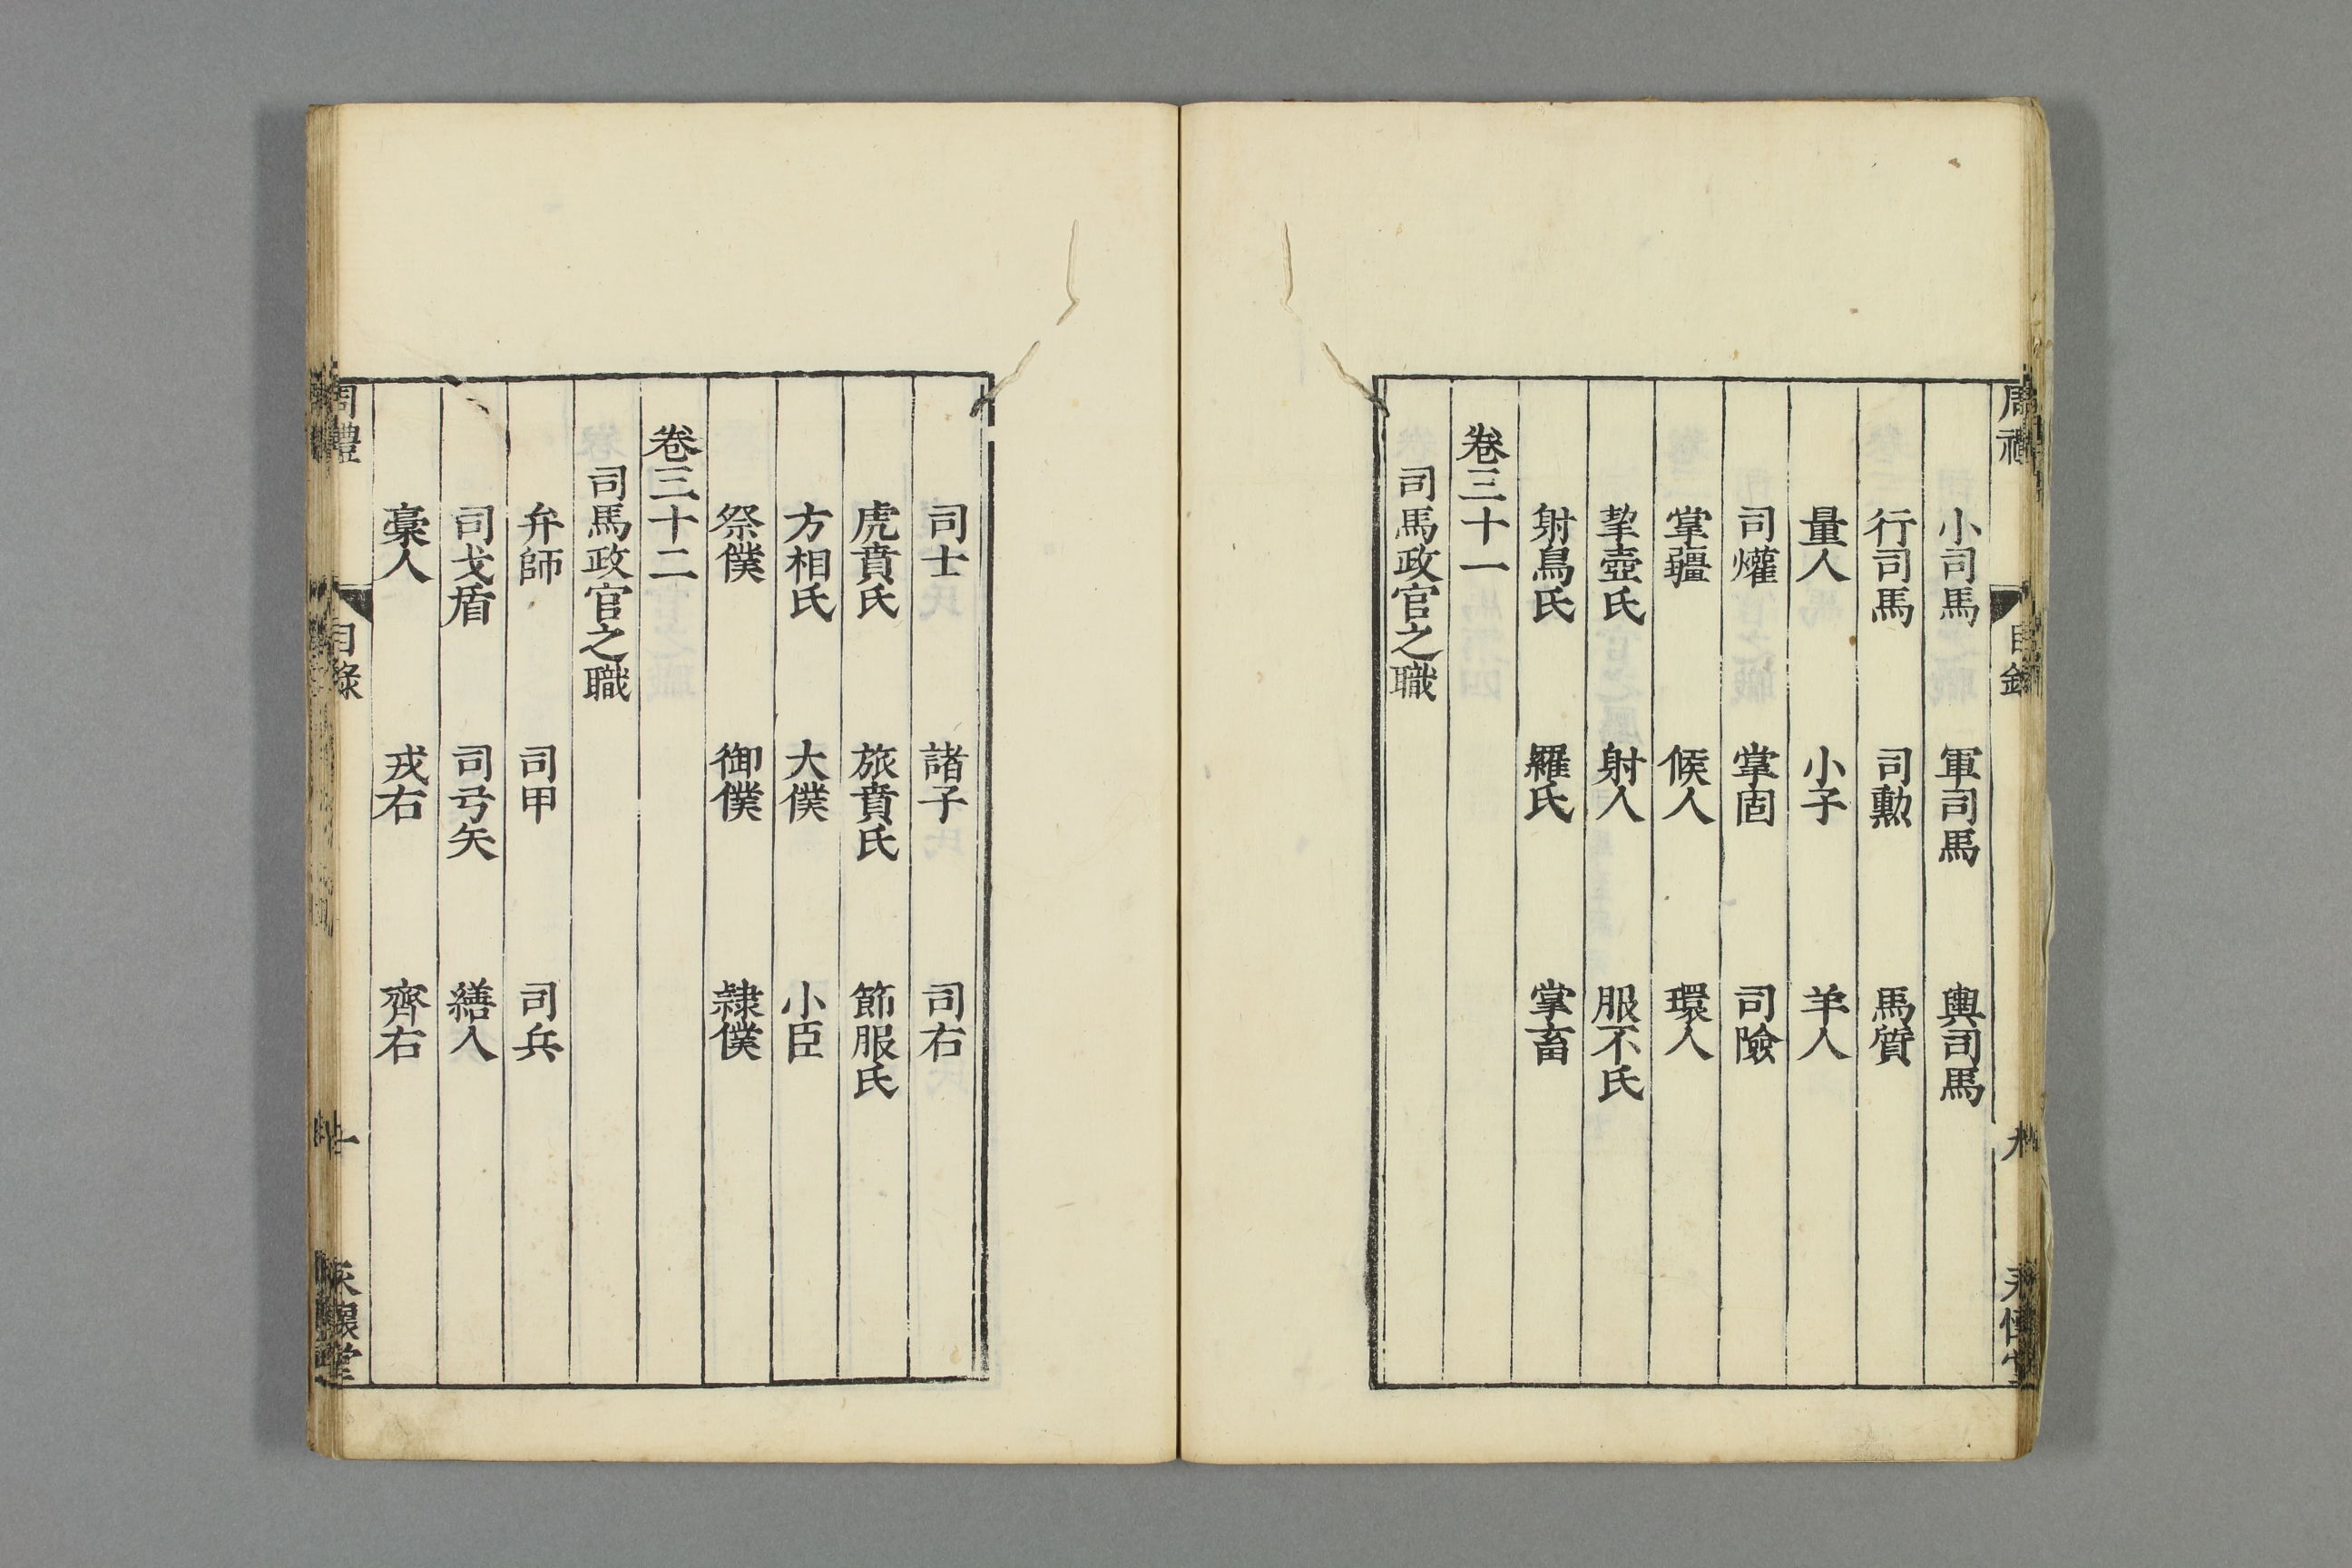 小司馬 軍司馬 輿司馬
行司馬 司勳 馬質
量人 小子 羊人
司爟 掌固 司險
掌疆 候人 環人
挈壺氏 射人 服不氏
射鳥氏 羅氏 掌畜
卷三十一
司馬政官之職
司士 諸子 司右
虎賁氏 旅賁氏 節服氏
方相氏 大僕 小臣
祭僕 御僕 隸僕
卷三十二
司馬政官之職
弁師 司甲 司兵
司戈盾 司弓矢 繕人
槀人 戎右 齊右
周禮 目錄